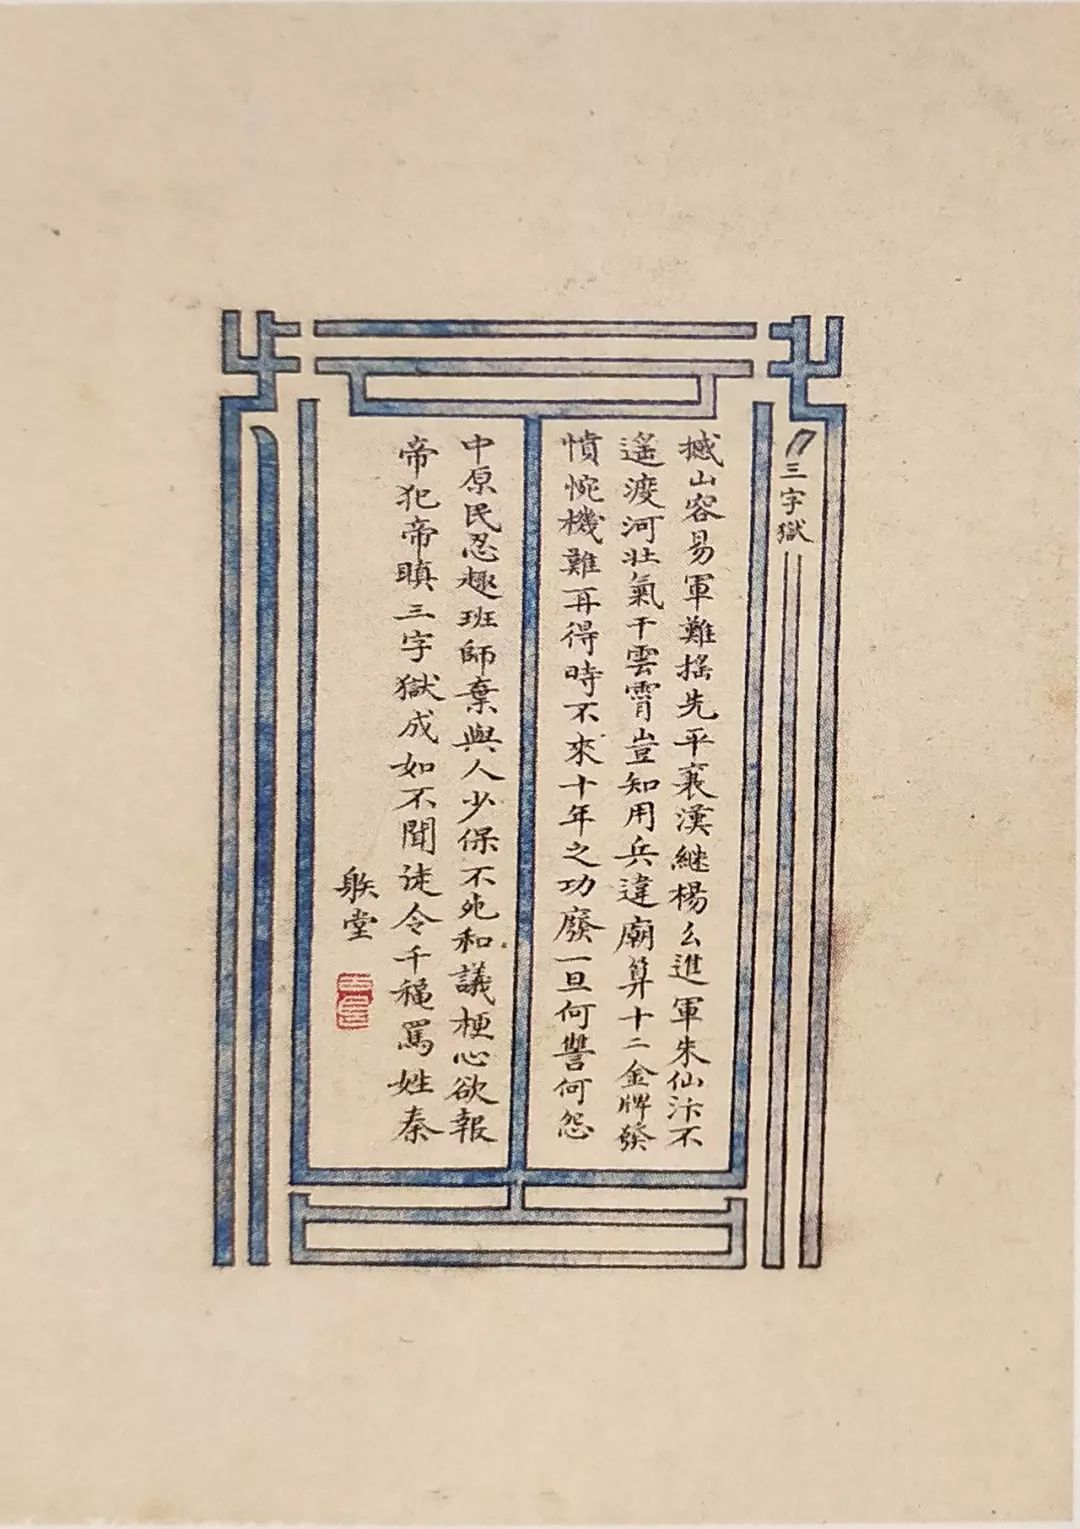 三字獄
撼山容易軍難搖先平襄漢繼楊么進軍朱仙汴不
遥渡河壮氣干雲霄豈知用兵違廟算十二金牌發
憤惋機難再得時不來十年之功廢一旦何讐何怨
中原民忍趣班師棄與人少保不死和議梗心欲報
帝犯帝瞋三字獄成如不聞徒令千穐罵姓秦
堂